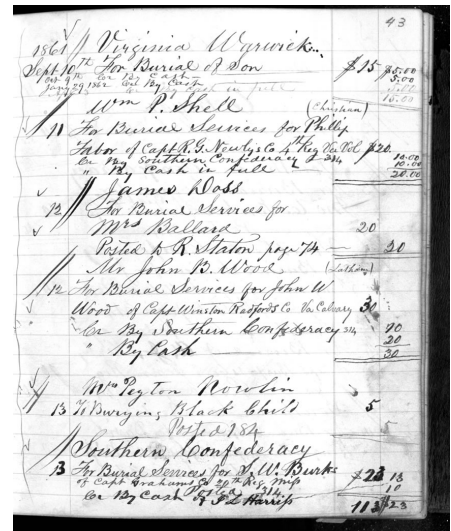 43
1861 Virginia Warwick
Sept 10th For Burial of Son $15 $5.00
Oct 9th Cr By Cash 5.00
Jany 29 1862 Cr By Cash
By Cash in full
15.00
Wm P. Shell (Christian)
11 For Burial Services for Phillip
Tabor of Capt R. G. Newlys Co 4th Reg Va Vol $20.
Cr By Southern Confederacy 314 10.00
" By Cash in full 10.00
20.00
James Doss
12 For Burial Services for
Mrs Ballard 20
Posted to R. Staton page 74 — 20
Mr John B. Wood
12 For Burial Services for John W
Wood of Capt Winston Radfords Co Va Calvary 30
Cr By Southern Confederacy 314 10
" By Cash — 20
30
Peyton Nowlin
13 To Burying Black Child 5
Posted 184 5
Southern Confederacy
13 For Burial Services for S. W. Burks $23 13
of Capt Grahams Co 20th Reg Miss 10
Cr By Cash of J L Harriss 113 $23